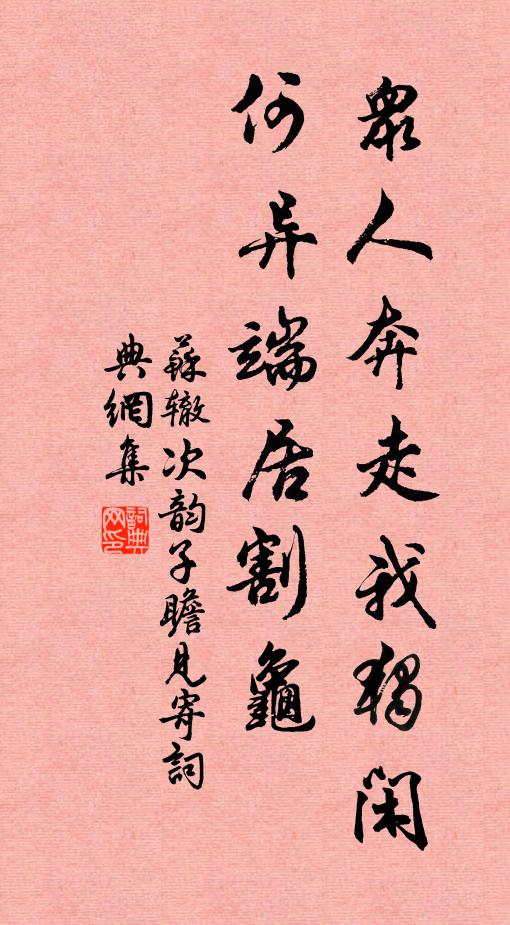 眾人奔走我獨閑
何异端居割龜
蘇辙次韵子瞻見寄詞
典網集
詞典网印